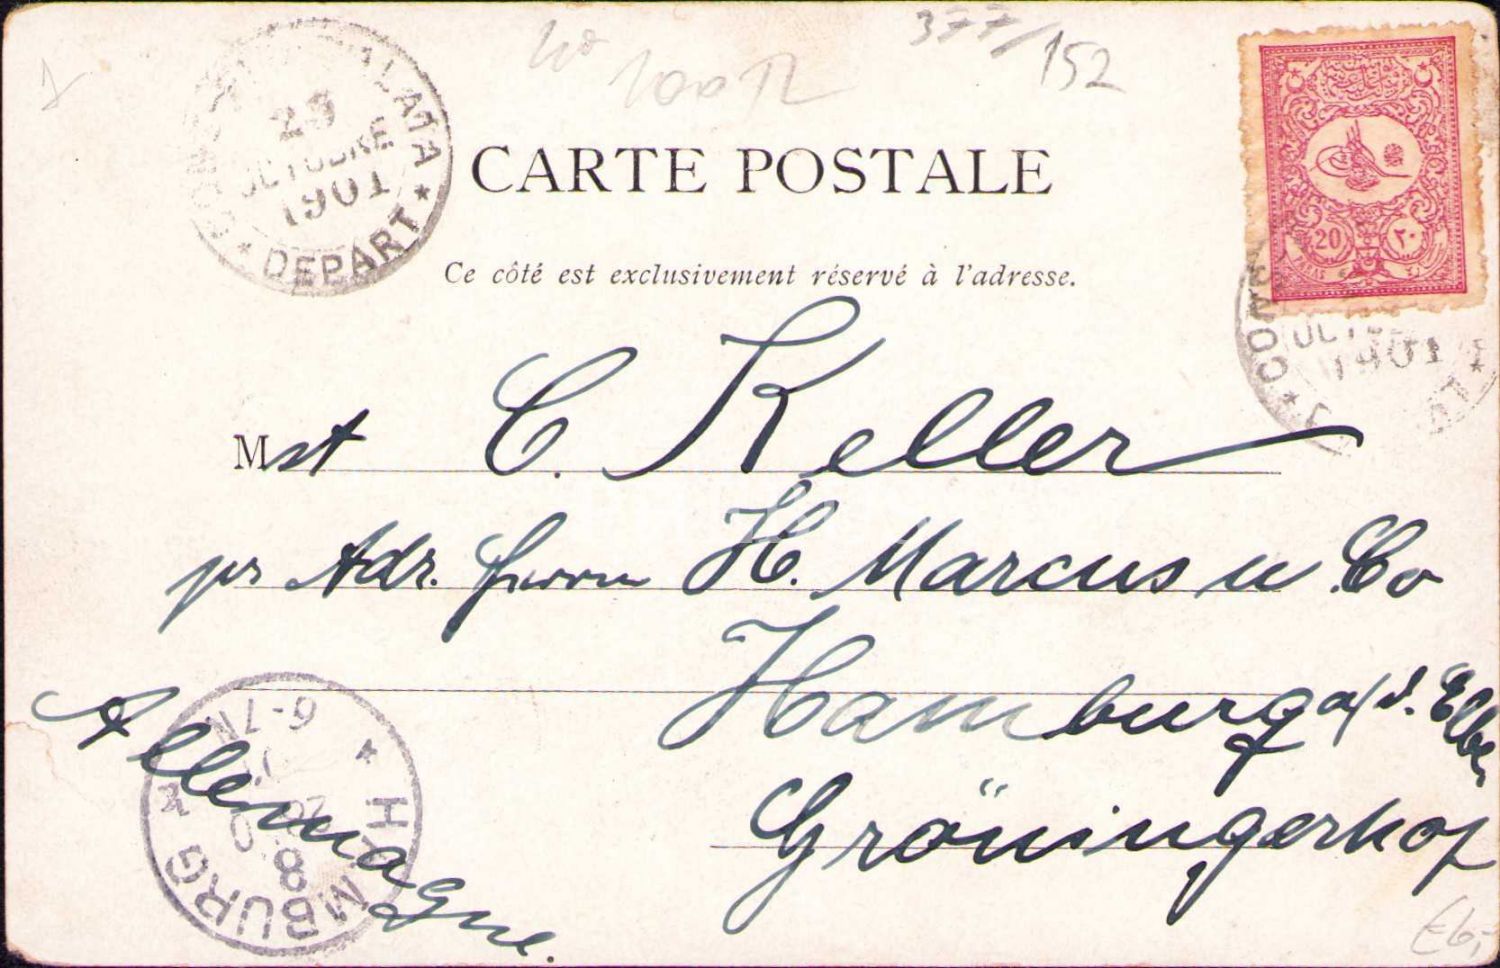 377/152
100 TL
CARTE POSTALE
GALATA
23
OCTOBRE
1901
DEPART
20
٢٠
Ce côté est exclusivement réservé à l'adresse.
CONS
1901
Mst C. Keller
pr Adr. Herrn H. Marcus u Co
Hamburg a/d. Elbe,
Gröningerhof
Allemagne.
HAMBURG
6-7N
8